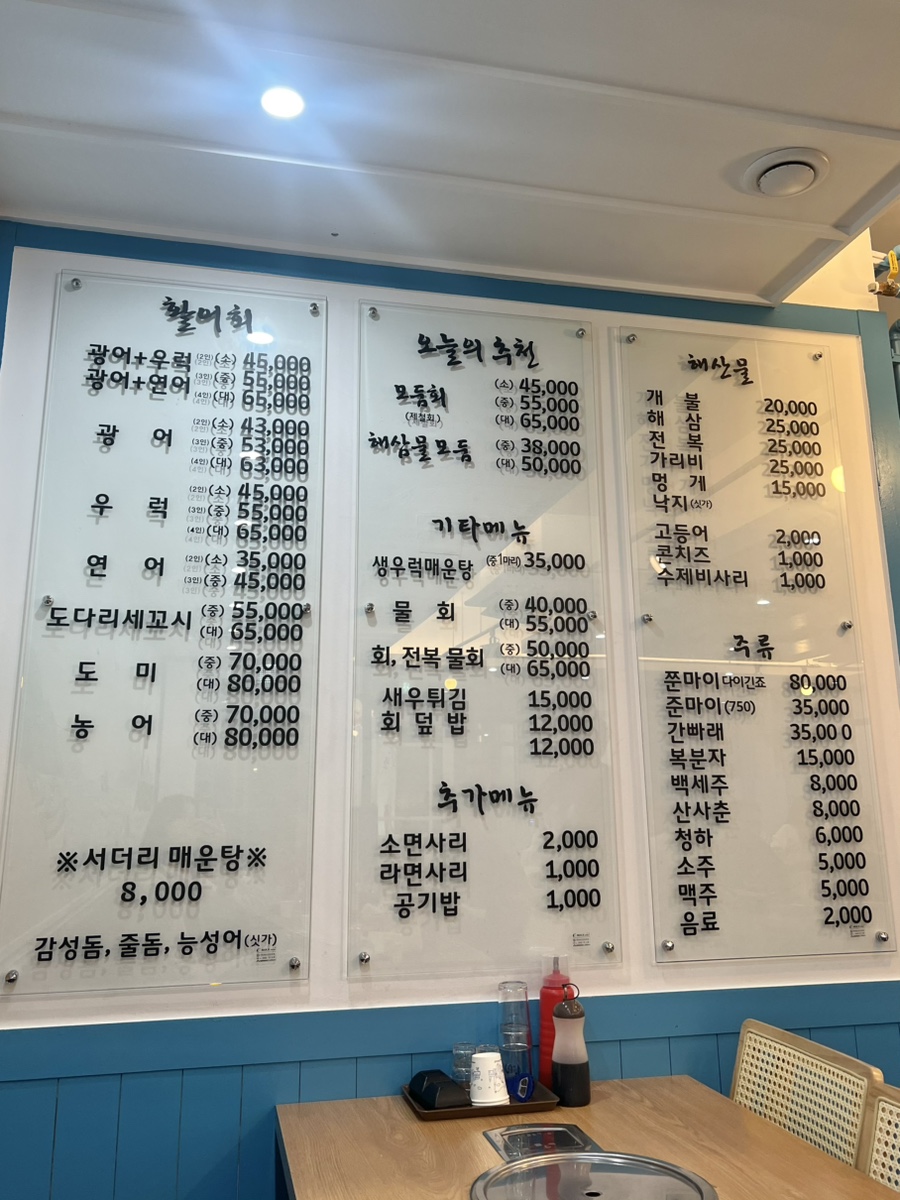 활어회
광어+우럭 (2인)(소) 45,000
광어+연어 (3인)(중) 55,000
(4인)(대) 65,000
광 어 (2인)(소) 43,000
(3인)(중) 53,000
(4인)(대) 63,000
우 럭 (2인)(소) 45,000
(3인)(중) 55,000
(4인)(대) 65,000
연 어 (2인)(소) 35,000
(3인)(중) 45,000
도다리세꼬시 (중) 55,000
(대) 65,000
도 미 (중) 70,000
(대) 80,000
농 어 (중) 70,000
(대) 80,000
※서더리 매운탕※
8,000
감성돔, 줄돔, 능성어(싯가)
오늘의 추천
모듬회 (소) 45,000
(제철회) (중) 55,000
(대) 65,000
해삼물모듬 (중) 38,000
(대) 50,000
기타메뉴
생우럭매운탕 (중1마리) 35,000
물 회 (중) 40,000
(대) 55,000
회, 전복 물회 (중) 50,000
(대) 65,000
새우튀김 15,000
회 덮 밥 12,000
12,000
추가메뉴
소면사리 2,000
라면사리 1,000
공기밥 1,000
해산물
개 불 20,000
해 삼 25,000
전 복 25,000
가리비 25,000
멍 게 15,000
낙지(싯가)
고등어 2,000
콘치즈 1,000
수제비사리 1,000
주류
쭌마이다이긴죠 80,000
준마이(750) 35,000
간빠래 35,00 0
복분자 15,000
백세주 8,000
산사춘 8,000
청하 6,000
소주 5,000
맥주 5,000
음료 2,000